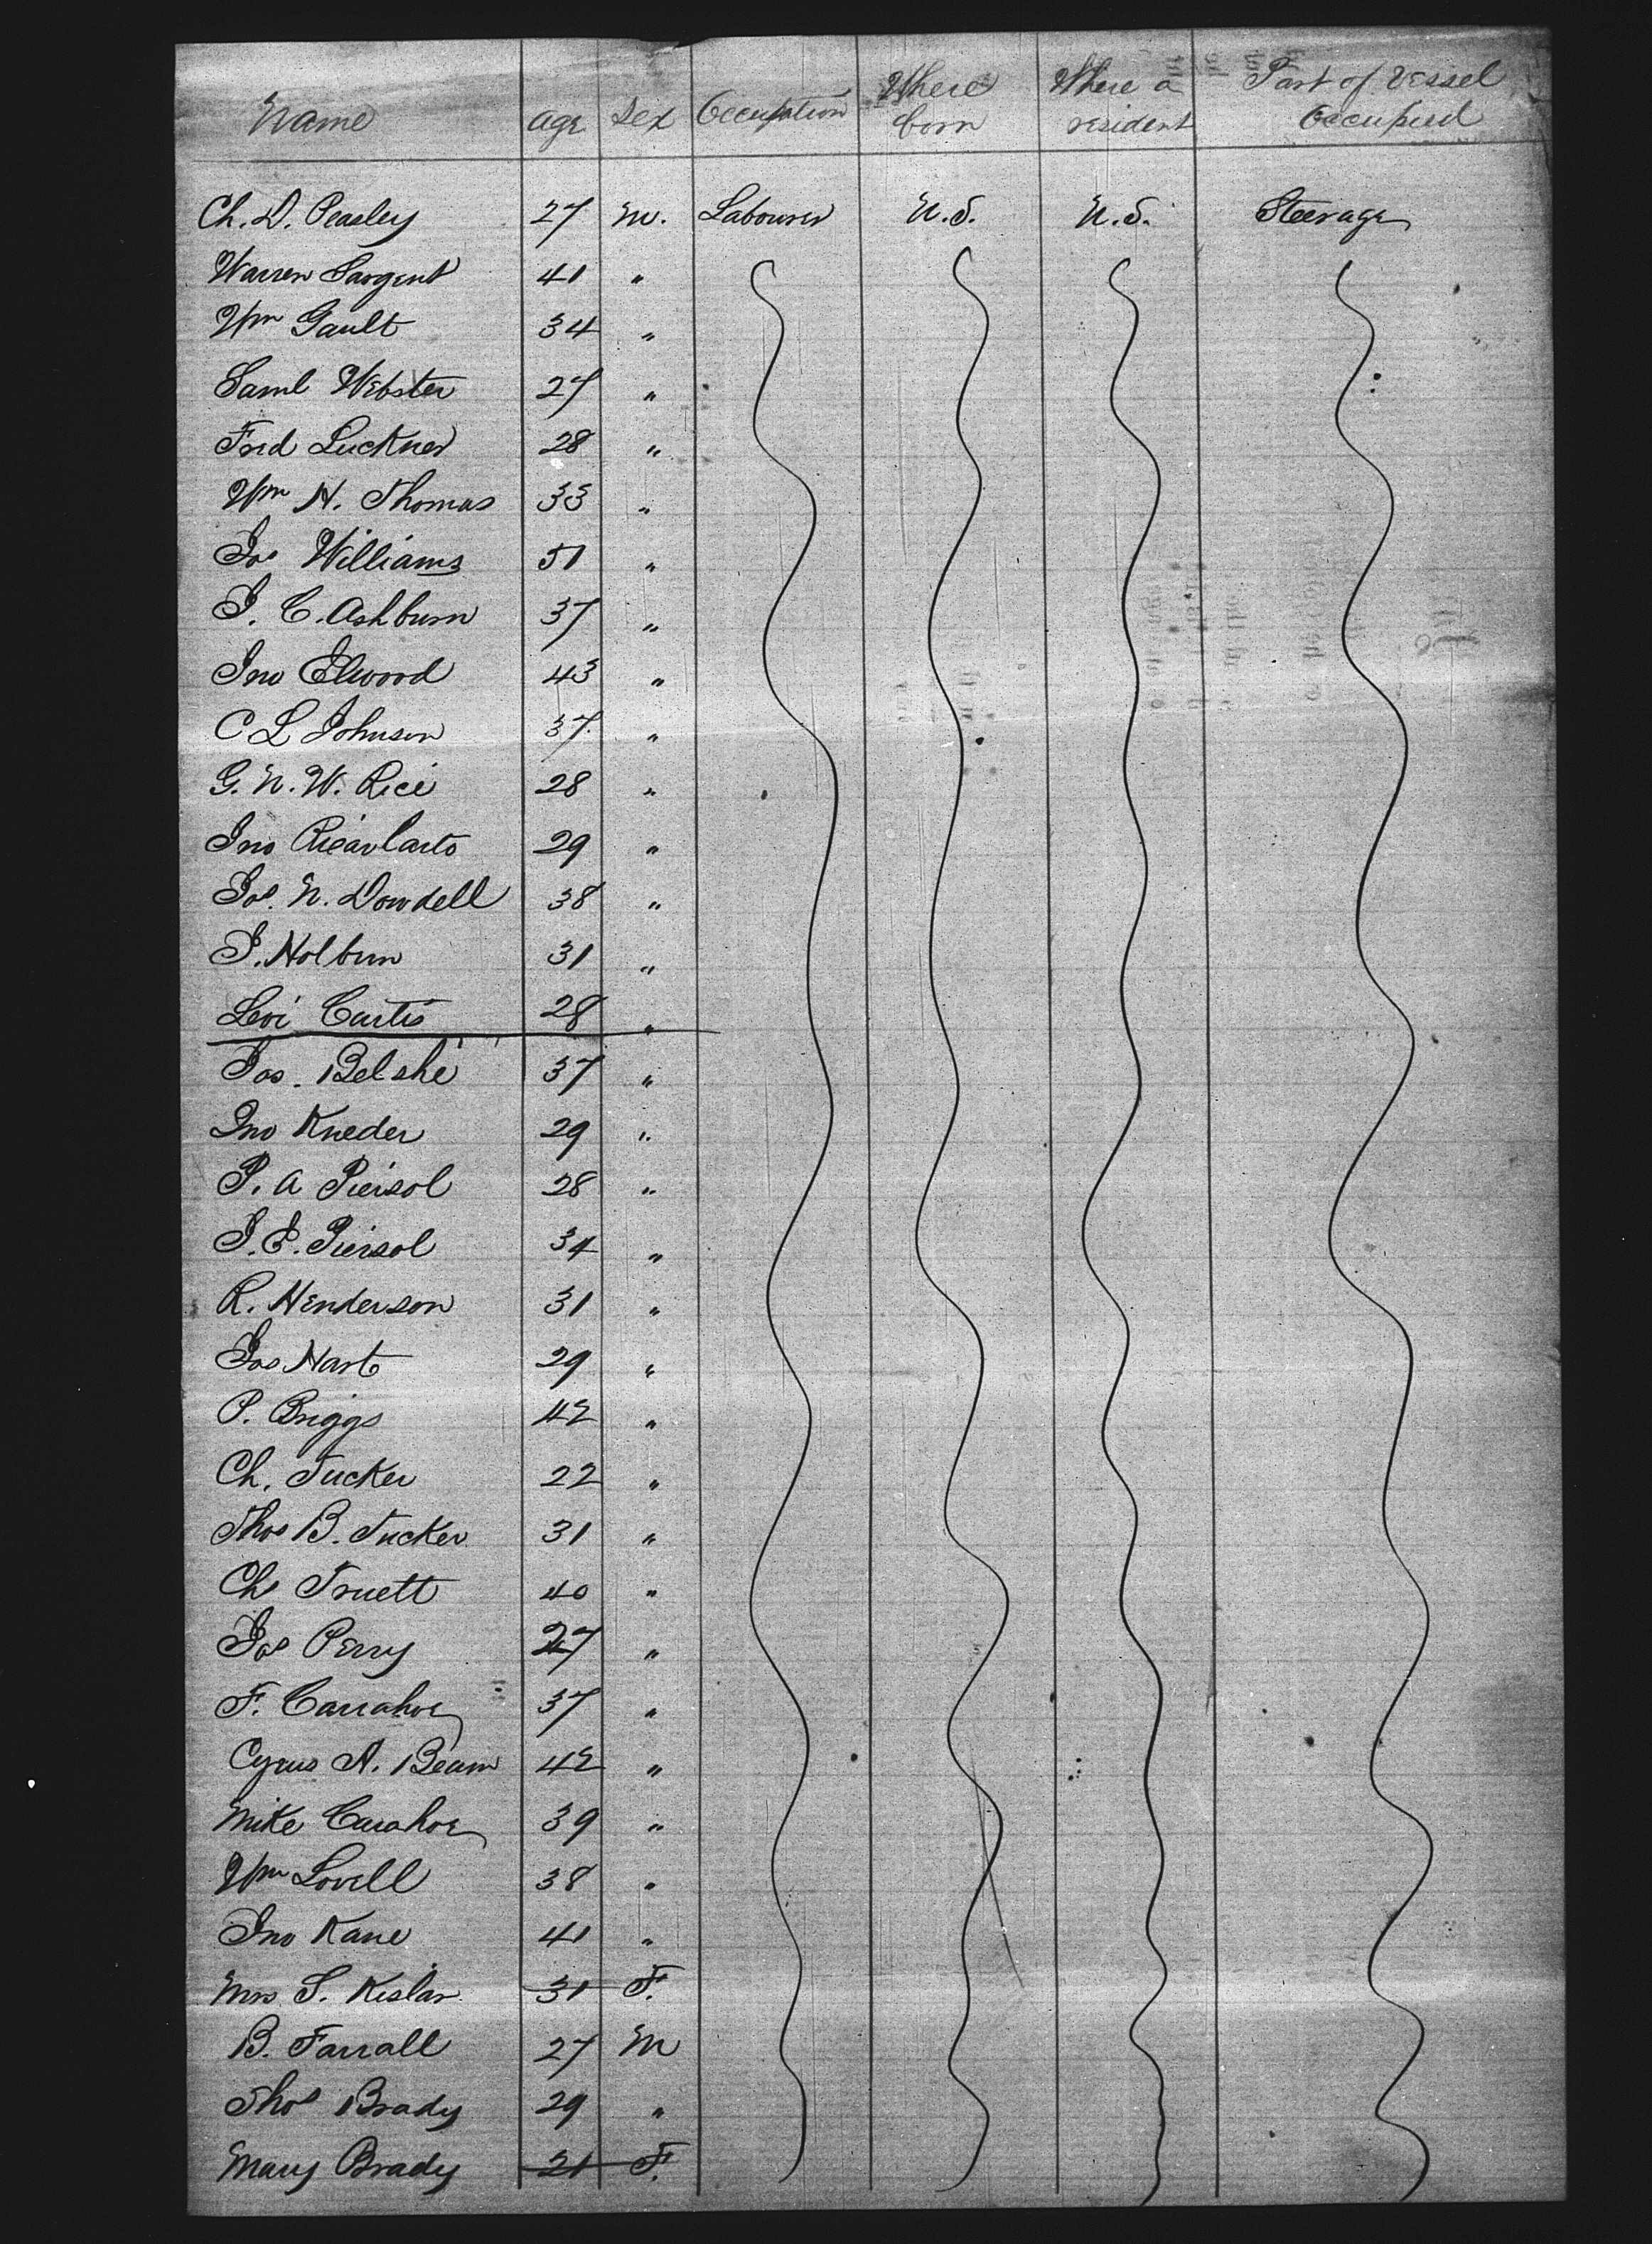 Name age Sex Occupation Where born Where a resident Part of Vessel Occupied
Ch. D. Peasley 27 M. Labourer U.S. U.S. Steerage
Warren Sargent 41 "
Wm Gault 34 "
Saml Webster 27 "
Fred Luckner 28 "
Wm H. Thomas 33 "
Jos Williams 51 "
J. C. Ashburn 37 "
Jno Elwood 43 "
C L Johnson 37 "
G. N. W. Rice 28 "
Jno 29 "
Jos. N. Dowdell 38 "
J. Holburn 31 "
Levi Curtis 28 "
Jas. Belshe 37 "
Jno Kneder 29 "
P. A Piersol 28 "
J. E. Piersol 34 "
R. Henderson 31 "
Jas Hart 29 "
P. Briggs 42 "
Ch. Tucker 22 "
Thos B. Tucker 31 "
Ch Truett 40 "
Jos Perry 27 "
F. Carrahor 37 "
Cyrus A. Beam 42 "
Mike Carahor 39 "
Wm Lovell 38 "
Jno Kane 41 "
Mrs S. Keslar 31 F.
B. Farrall 27 M
Thos Brady 29 "
Mary Brady 21 F.